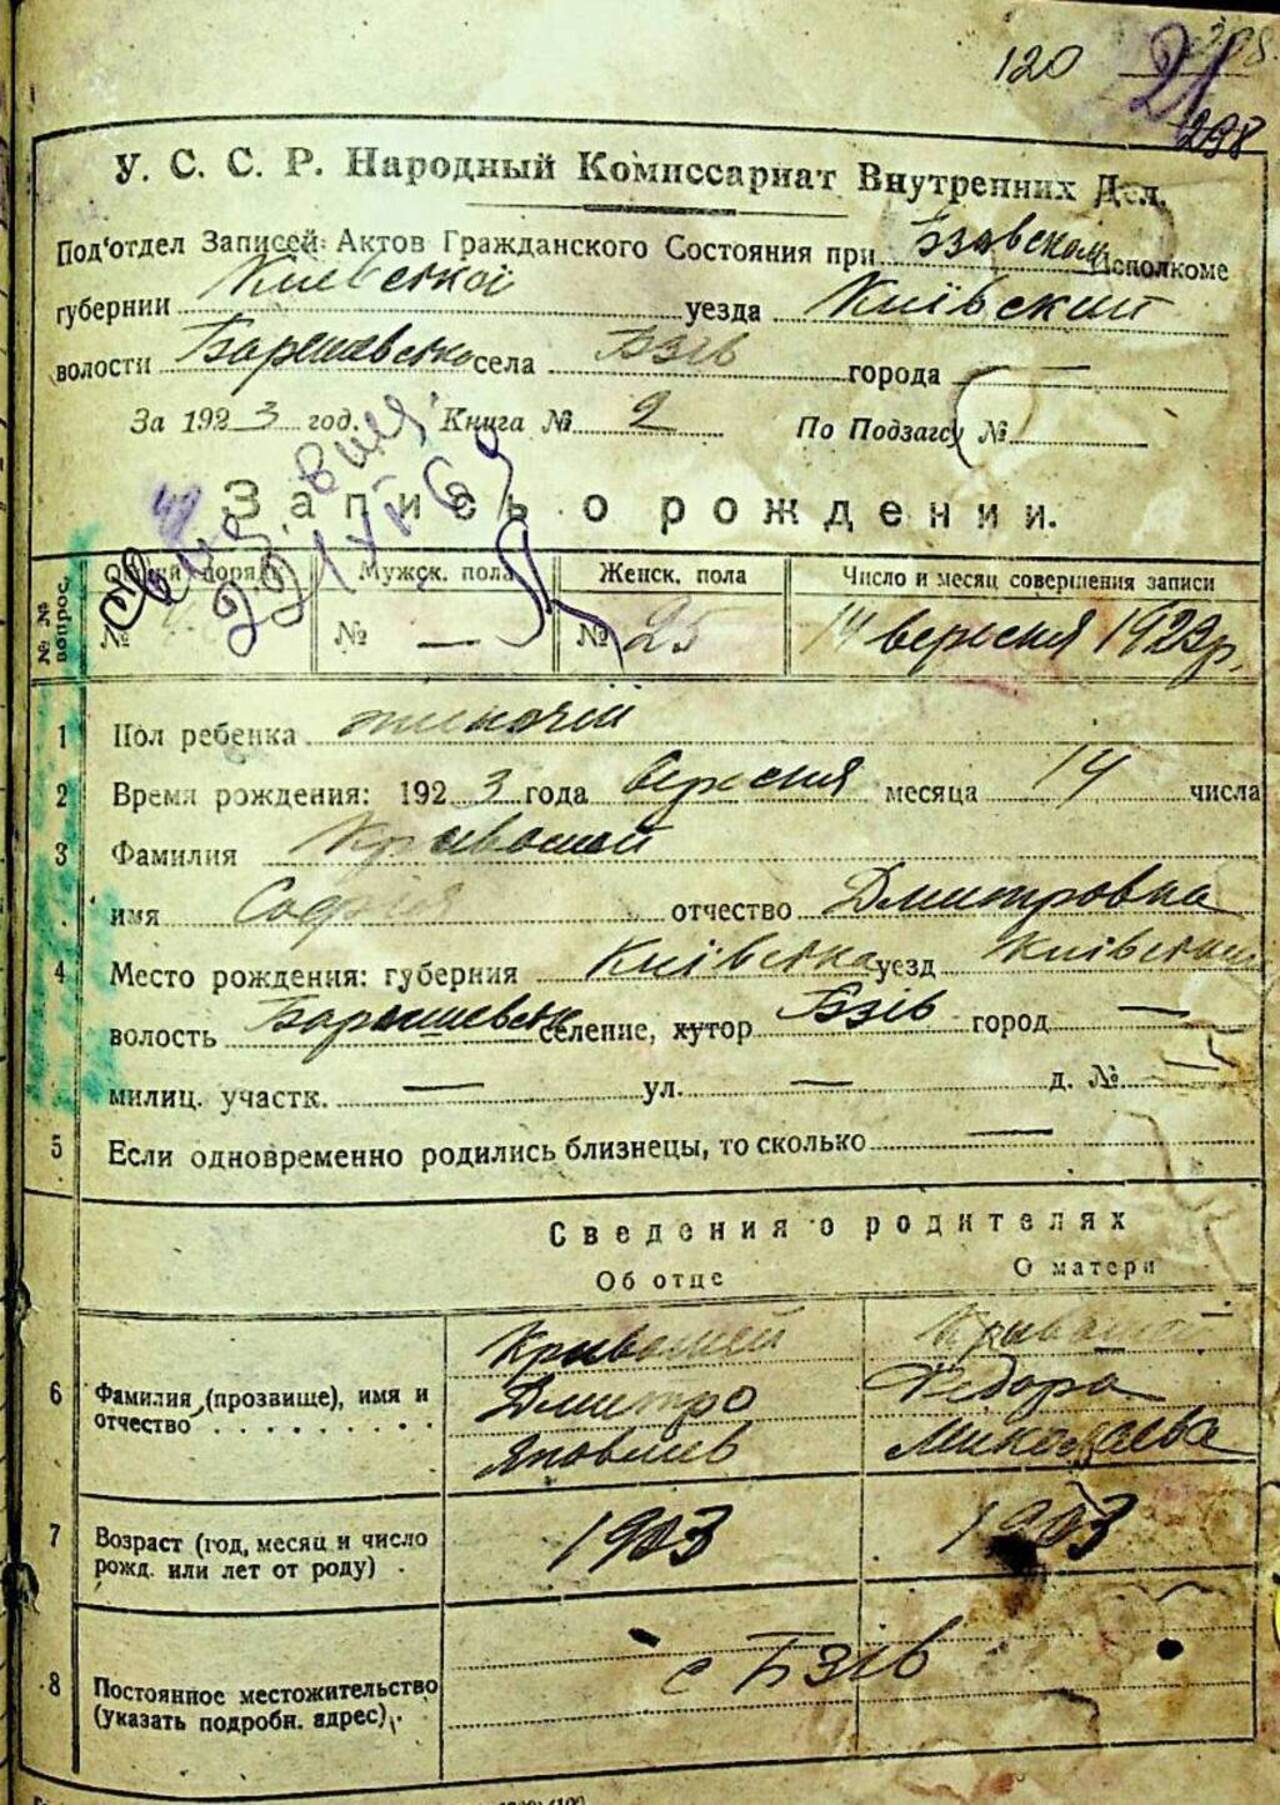 120 308.
21
298
У. С. С. Р. Народный Комиссариат Внутренних Дел.
Под'отдел Записей Актов Гражданского Состояния при Бзовском Исполкоме
губернии Киевської уезда Київский
волости Баришевсько села Бзів города —
За 1923 год. Книга № 2 По Подзагсу №
Запись о рождении.
№ № вопрос. Общий поряд. Мужск. пола Женск. пола Число и месяц совершения записи
№ № — № 25 14 вересня 1923 р.
1 Пол ребенка жиночий
2 Время рождения: 1923 года вересня месяца 14 числа
3 Фамилия Кривошей
имя Софія отчество Дмитровна
4 Место рождения: губерния Київска уезд Київський
волость Баришевськ селение, хутор Бзів город —
милиц. участк. — ул. — д. № —
5 Если одновременно родились близнецы, то сколько —
Сведения о родителях
Об отце О матери
Кривошей Кривошей
6 Фамилия (прозвище), имя и Дмитро Федора
отчество Яковлев Миколаева
7 Возраст (год, месяц и число 1903 1903
рожд. или лет от роду)
с Бзів
8 Постоянное местожительство
(указать подробн. адрес)